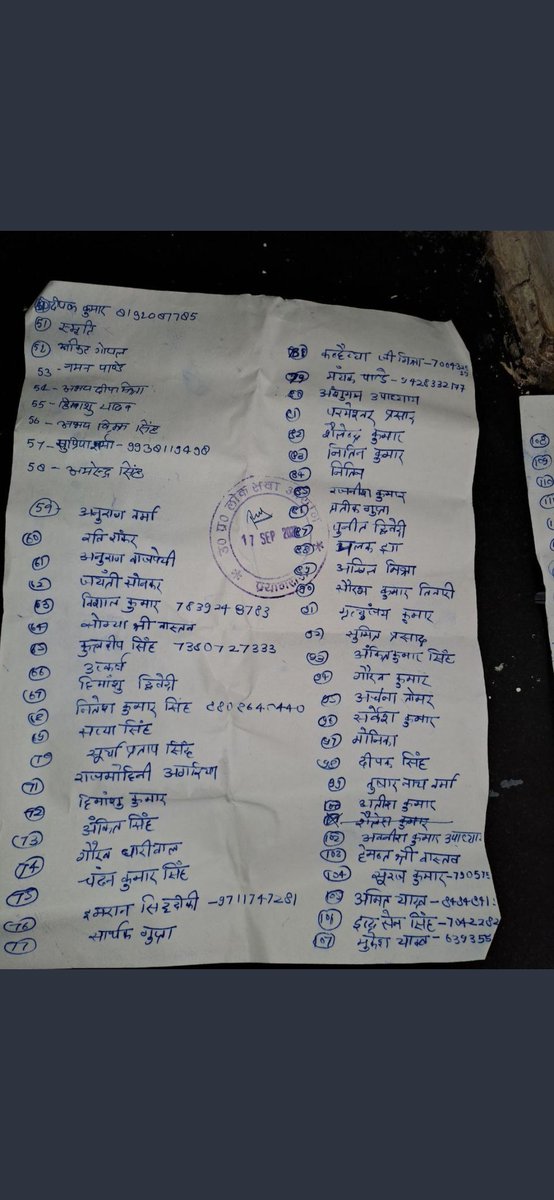 दीपक कुमार 8192087785
51 स्मृति
52 अंकित गोपाल
53 - नमन पाण्डे
54 - अभय दीप मिश्रा
55 - हिमांशु यादव
56 - अभय विक्रम सिंह
57 - सुप्रिया वर्मा - 9938119498
58 - अमरेन्द्र सिंह
59 अनुराग वर्मा
60 रवि शंकर
61 अनुराग बाजपेयी
62 जयंती सोनकर
63 विशाल कुमार 7839248783
64 श्रीवास्तव
65 कुलदीप सिंह 7380727333
66 उत्कर्ष
67 हिमांशु द्विवेदी
68 नितेश कुमार सिंह
69 सत्या सिंह
70 सूर्या प्रताप सिंह
71 राजमोहिनी
72 हिमांशु कुमार
73 अंकित सिंह
74 गौरव धारीवाल
75 चंदन कुमार सिंह
76 इमरान सिद्दीकी - 9711747281
77 सार्थक गुप्ता
उ० प्र० लोक सेवा आयोग
17 SEP
प्रयागराज
78 कन्हैया जी मिश्रा - 7004
79 मयंक पाण्डे - 9428332177
80 उपाध्याय
81 परमेश्वर प्रसाद
82 शैलेन्द्र कुमार
83 नितिन कुमार
84 नितिन
85 रजनीश कुमार
86 प्रतीक गुप्ता
87 पुनीत द्विवेदी
88 पलक
89 अंकित मिश्रा
90 सौरभ कुमार तिवारी
91 मृत्युंजय कुमार
92 सुमित प्रसाद
93 अंकित कुमार सिंह
94 गौरव कुमार
95 अर्चना तोमर
96 सर्वेश कुमार
97 मोनिका
98 दीपक सिंह
99 तुषार नाथ वर्मा
100 कुमार
101 शैलेश कुमार
102 अवनीश कुमार उपाध्या
103 हेमन्त श्री वास्तव
104 सूरज कुमार - 790575
105 अमित यादव - 8484891
106 इन्द्र सेन सिंह - 7042282
107 मुकेश यादव - 639358
108
109
110